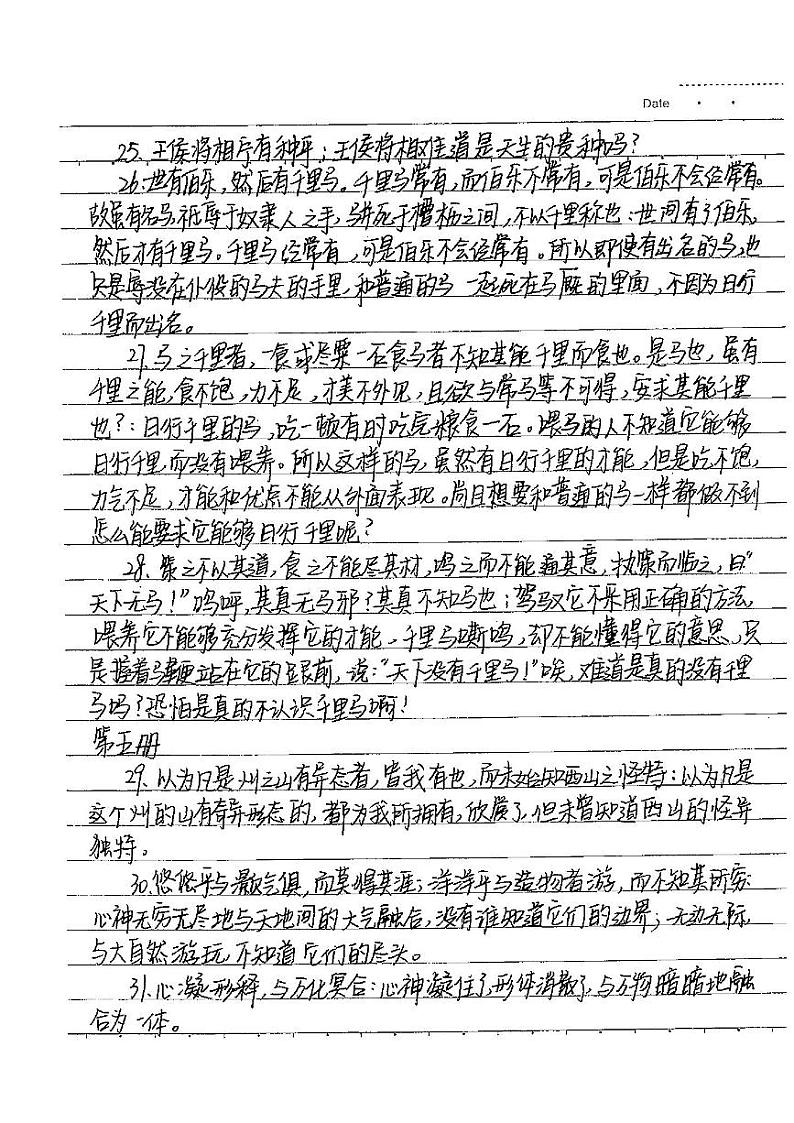 Date
25. 王侯将相宁有种乎；王侯将相难道是天生的贵种吗？
26. 世有伯乐，然后有千里马。千里马常有，而伯乐不常有，可是伯乐不会经常有。
故虽有名马，祗辱于奴隶人之手，骈死于槽枥之间，不以千里称也：世间有了伯乐，
然后才有千里马。千里马经常有，可是伯乐不会经常有。所以即使有出名的马，也
只是辱没在仆役的马夫的手里，和普通的马一起死在马厩的里面，不因为日行
千里而出名。
27. 马之千里者，一食或尽粟一石食马者不知其能千里而食也。是马也，虽有
千里之能，食不饱，力不足，才美不外见，且欲与常马等不可得，安求其能千里
也？：日行千里的马，吃一顿有时吃完粮食一石。喂马的人不知道它能够
日行千里而没有喂养。所以这样的马，虽然有日行千里的才能，但是吃不饱，
力气不足，才能和优点不能从外面表现。尚且想要和普通的马一样都做不到
怎么能要求它能够日行千里呢？
28. 策之不以其道，食之不能尽其材，鸣之而不能通其意，执策而临之，曰“
天下无马！”呜呼，其真无马邪？其真不知马也：驾驭它不采用正确的方法，
喂养它不能够充分发挥它的才能，千里马嘶鸣，却不能懂得它的意思，只
是握着马鞭站在它的跟前，说：“天下没有千里马！”唉，难道是真的没有千里
马吗？恐怕是真的不认识千里马啊！
第五册
29. 以为凡是州之山有异态者，皆我有也，而未始知西山之怪特：以为凡是
这个州的山有奇异形态的，都为我所拥有，欣赏了，但未曾知道西山的怪异
独特。
30. 悠悠乎与颢气俱，而莫得其涯；洋洋乎与造物者游，而不知其所穷：
心神无穷无尽地与天地间的大气融合，没有谁知道它们的边界；无边无际，
与大自然游玩，不知道它们的尽头。
31. 心凝形释，与万化冥合：心神凝住了，形体消散了，与万物暗暗地融
合为一体。